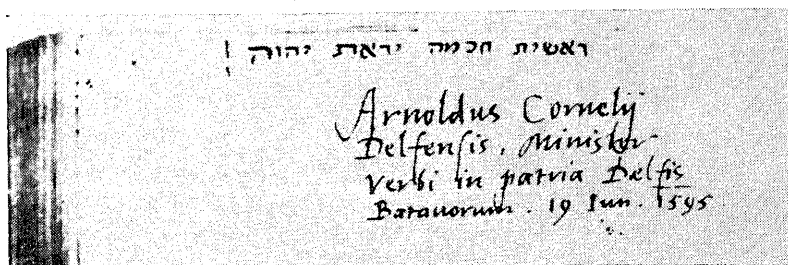 ראשית חכמה יראת יהוה !
Arnoldus Cornelij
Delfensis, Minister
Verbi in patria Delfis
Batavorum . 19 Iun . 1595